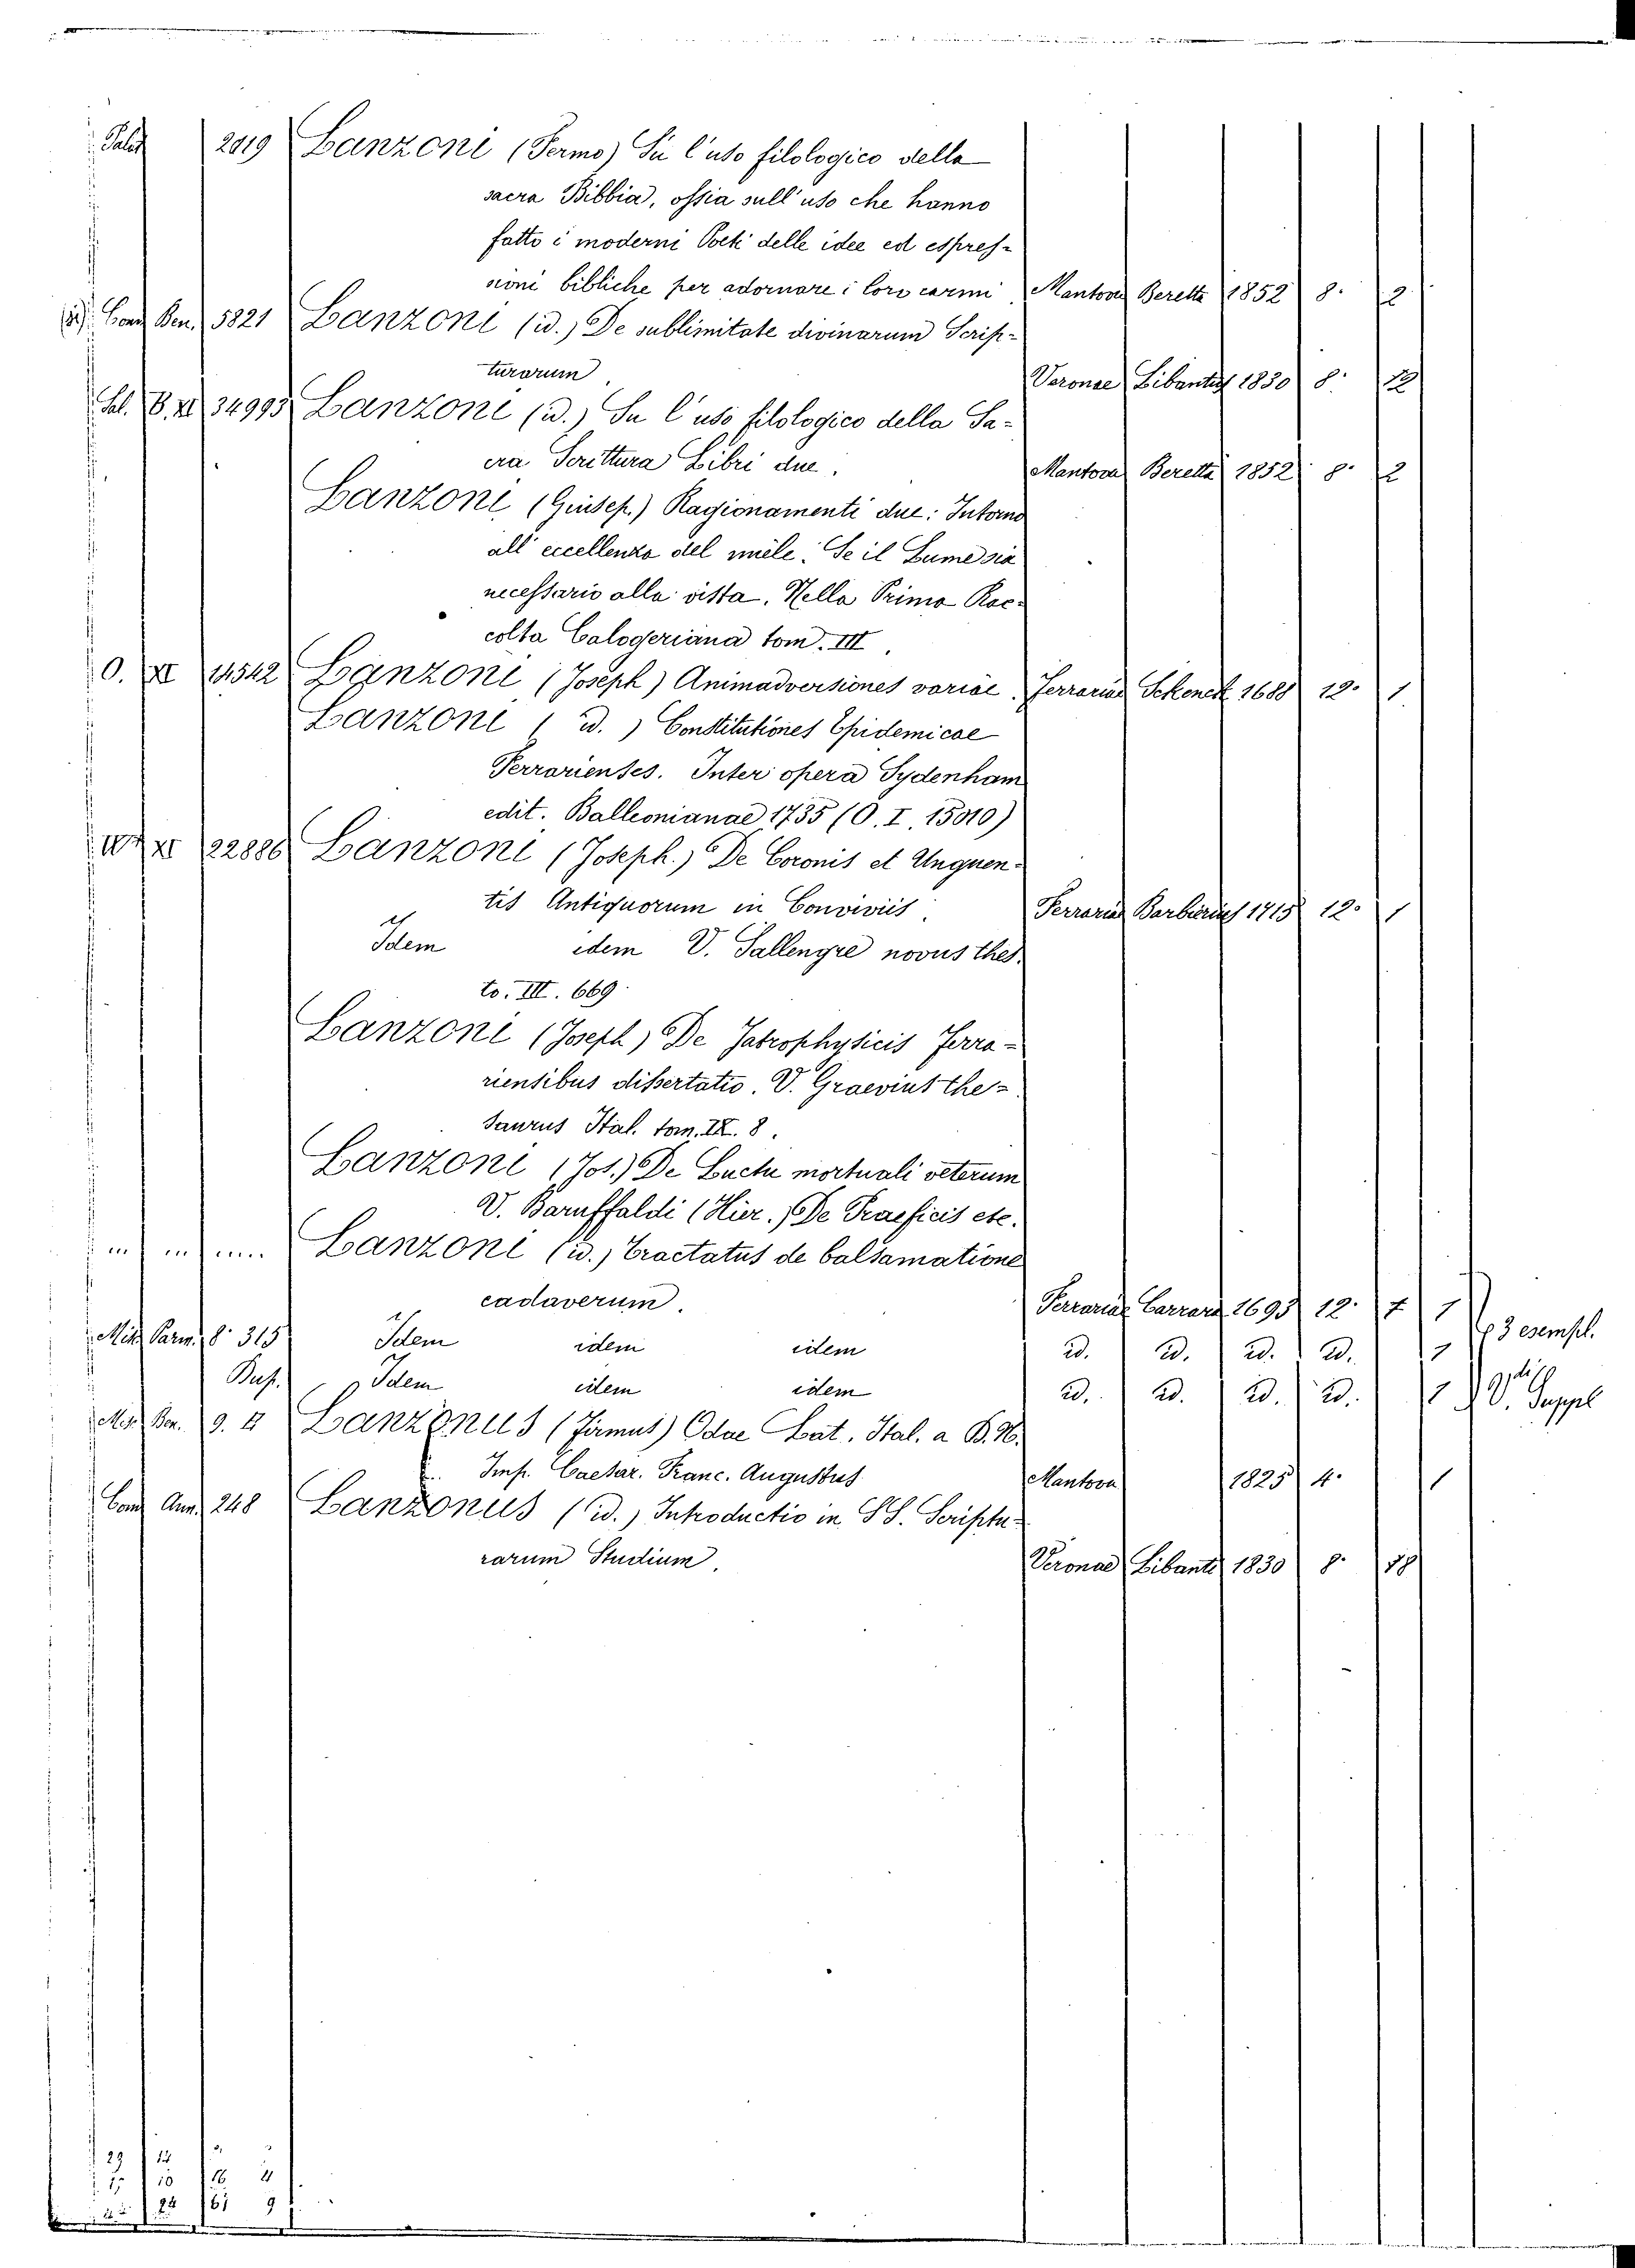 2019 Lanzoni (Fermo) Su l'uso filologico della
sacra Bibbia, ossia sull'uso che hanno
fatto i moderni Poeti delle idee ed espres-
sioni bibliche per adornare i loro carmi Mantova Beretta 1852 8. 2
Ben. 5821 Lanzoni (id.) De sublimitate divinarum Scrip-
turarum. Veronae Libantis 1830 8.
B. XI 34993 Lanzoni (id.) Su l'uso filologico della Sa-
cra Scrittura Libri due. Mantova Beretta 1852 8. 2
Lanzoni (Guisep.) Ragionamenti due: Intorno
all'eccellenza del miele. Se il Lume sia
necessario alla vista. Nella Prima Rac-
colta Calogeriana tom. III.
O. XI 14542 Lanzoni (Joseph) Animadversiones variae. Ferrariae Schenck 1688 12. 1
Lanzoni (id.) Constitutiones Epidemicae
Ferrarienses. Inter opera Sydenham
edit. Balleonianae 1735 (O. I. 15010)
XI 22886 Lanzoni (Joseph.) De Coronis et Unguen-
tis Antiquorum in Conviviis. Ferrariae Barbierius 1715 12. 1
Idem idem V. Sallengre novus thes.
to. III. 669.
Lanzoni (Joseph) De Jatrophysicis Ferra-
riensibus dissertatio. V. Graevius the-
saurus Ital. tom. IX. 8.
Lanzoni (Jos.) De Luctu mortuali veterum
V. Baruffaldi (Hier.) De Praeficis etc.
Lanzoni (id.) Tractatus de balsamatione
cadaverum. Ferrariae Carrara 1693 12. 1
Parm. 8. 315 Idem idem idem id. id. id. id. 1 3 esempl.
Idem idem idem id. id. id. id. 1 V. Suppl
Ben. 9. Lanzonus (Firmus) Odae Lat. Ital. a B. N.
Imp. Caesar. Franc. Augustus Mantova 1825 4. 1
Ann. 248 Lanzonus (id.) Introductio in SS. Scriptu-
rarum Studium. Veronae Libanti 1830 8.